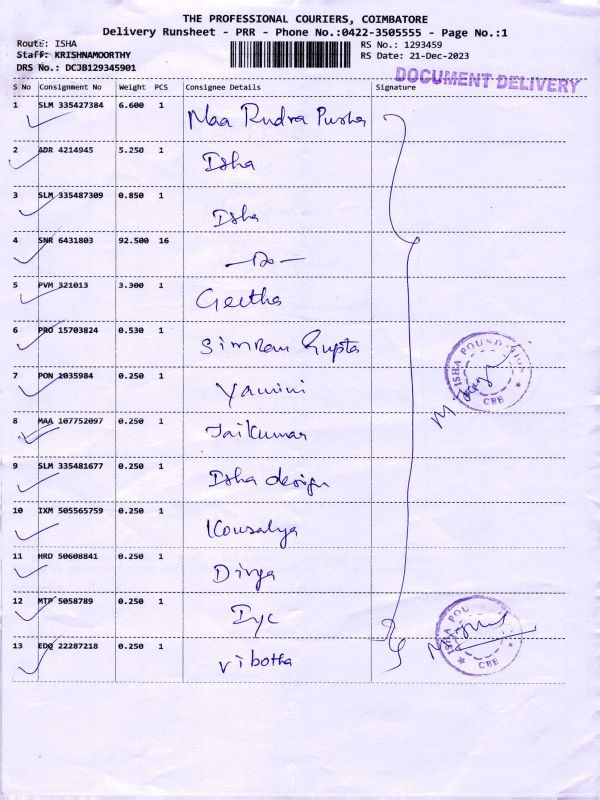 THE PROFESSIONAL COURIERS, COIMBATORE
Delivery Runsheet - PRR - Phone No.:0422-3505555 - Page No.:1
Route: ISHA RS No.: 1293459
Staff: KRISHNAMOORTHY RS Date: 21-Dec-2023
DRS No.: DCJB129345901
DOCUMENT DELIVERY
S No Consignment No Weight PCS Consignee Details Signature
1 SLM 335427384 6.600 1 Maa Rudra Pusha
2 ADR 4214945 5.250 1 Isha
3 SLM 335487309 0.850 1 Isha
4 SNR 6431803 92.500 16 —Do—
5 PVM 321013 3.300 1 Geetha
6 PRO 15703824 0.530 1 Simran Gupta
7 PON 1035984 0.250 1 Yamini
8 MAA 107752097 0.250 1 Jaikumar
9 SLM 335481677 0.250 1 Isha design
10 IXM 505565759 0.250 1 Kousalya
11 HRD 50608841 0.250 1 Divya
12 MTP 5058789 0.250 1 Iyc
13 EDQ 22287218 0.250 1 Vibotha
ISHA FOUNDATION
CBE
ISHA FOU
CBE